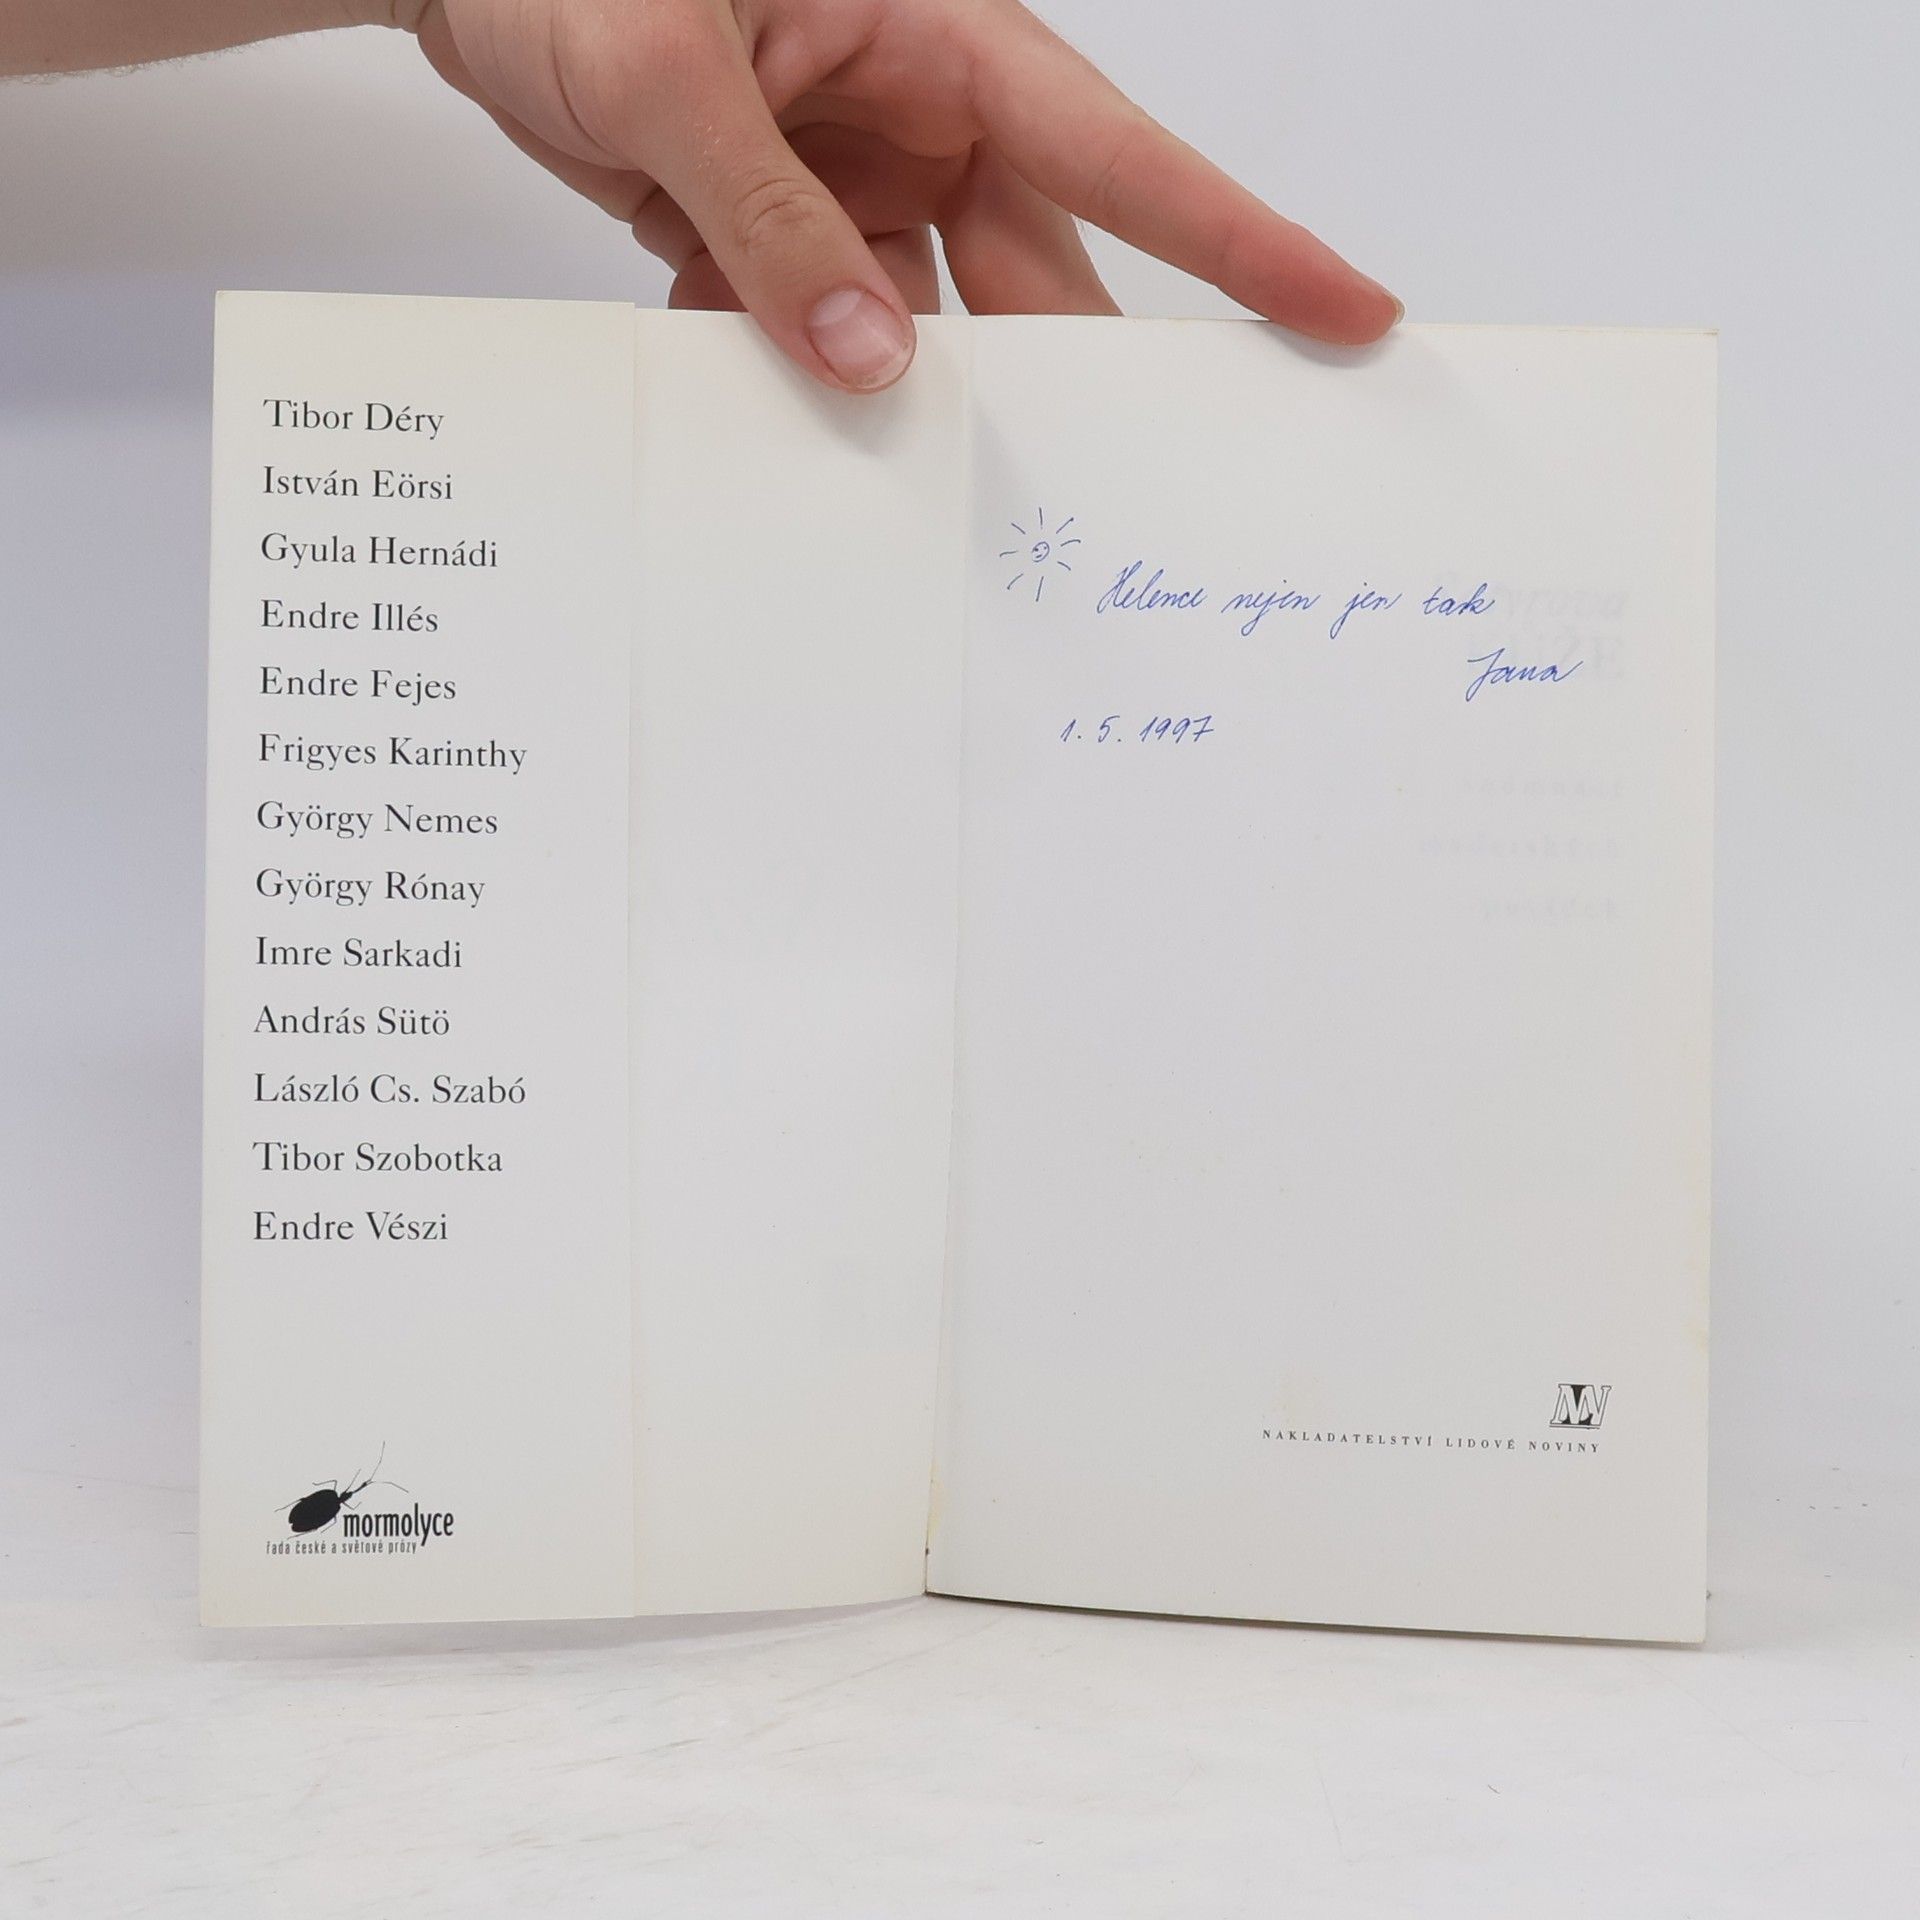 Tibor Déry
István Eörsi
Gyula Hernádi
Endre Illés
Endre Fejes
Frigyes Karinthy
György Nemes
György Rónay
Imre Sarkadi
András Sütö
László Cs. Szabó
Tibor Szobotka
Endre Vészi
mormolyce
řada české a světové prózy
Helence nejen jen tak
Jana
1. 5. 1997
NAKLADATELSTVÍ LIDOVÉ NOVINY